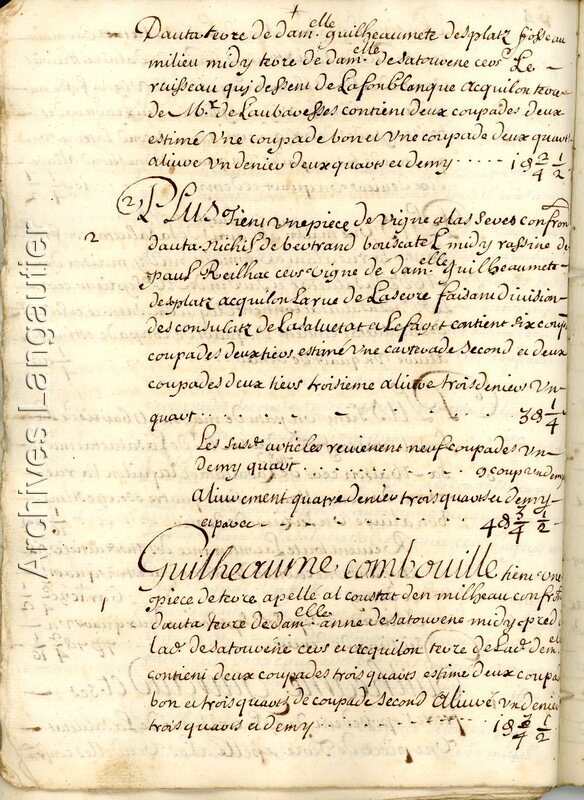 Dauta terre de dam.elle guilheaumete desplatz fosse au
milieu midy terre de dam.elle de satourene cers Le
ruisseau quj dessent de Lafonblanque acquilon terre
de Mr. de Laubaresses contient deux coupades deux
estimé Une coupade bon et Une coupade deux quart
aliuré Un denier deux quarts et demy ..... 1 ₰ 2/4 1/2
(2) PLus Tient Une piece de Vigne a las seres confron
2
dauta Richil de bertrand bouscatel midy rassine de
paul Reilhac cers Vigne dé dam.elle guilheaumete
desplatz acquilon Larue de Laserre faisant division
des consulatz de Lasaluetat et Lefaget contient six coup
coupades deux tiers estimé Une carterade second et deux
coupades deux tiers troisieme aliuré trois deniers Un
quart ........ 3 ₰ 1/4
Les susd. articles revienent neuf coupades Un
demy quart ...... 9 coup un demy
Aliurement quatre deniers trois quarts et demy
et pauce ..... 4 ₰ 3/4 1/2
Guilheaume combouille tient Une
1
piece de terre apellé al coustat den milheau confron
dauta terre de dam.elle anne de satourene midy pred d
lad. de satourene cers et acquilon terre de Lad. dem.elle
contient deux coupades trois quarts estimé deux coupa
bon et trois quarts de coupade second Aliuré Un denier
trois quarts et demy ........ 1 ₰ 3/4 1/2
Archives Langautier